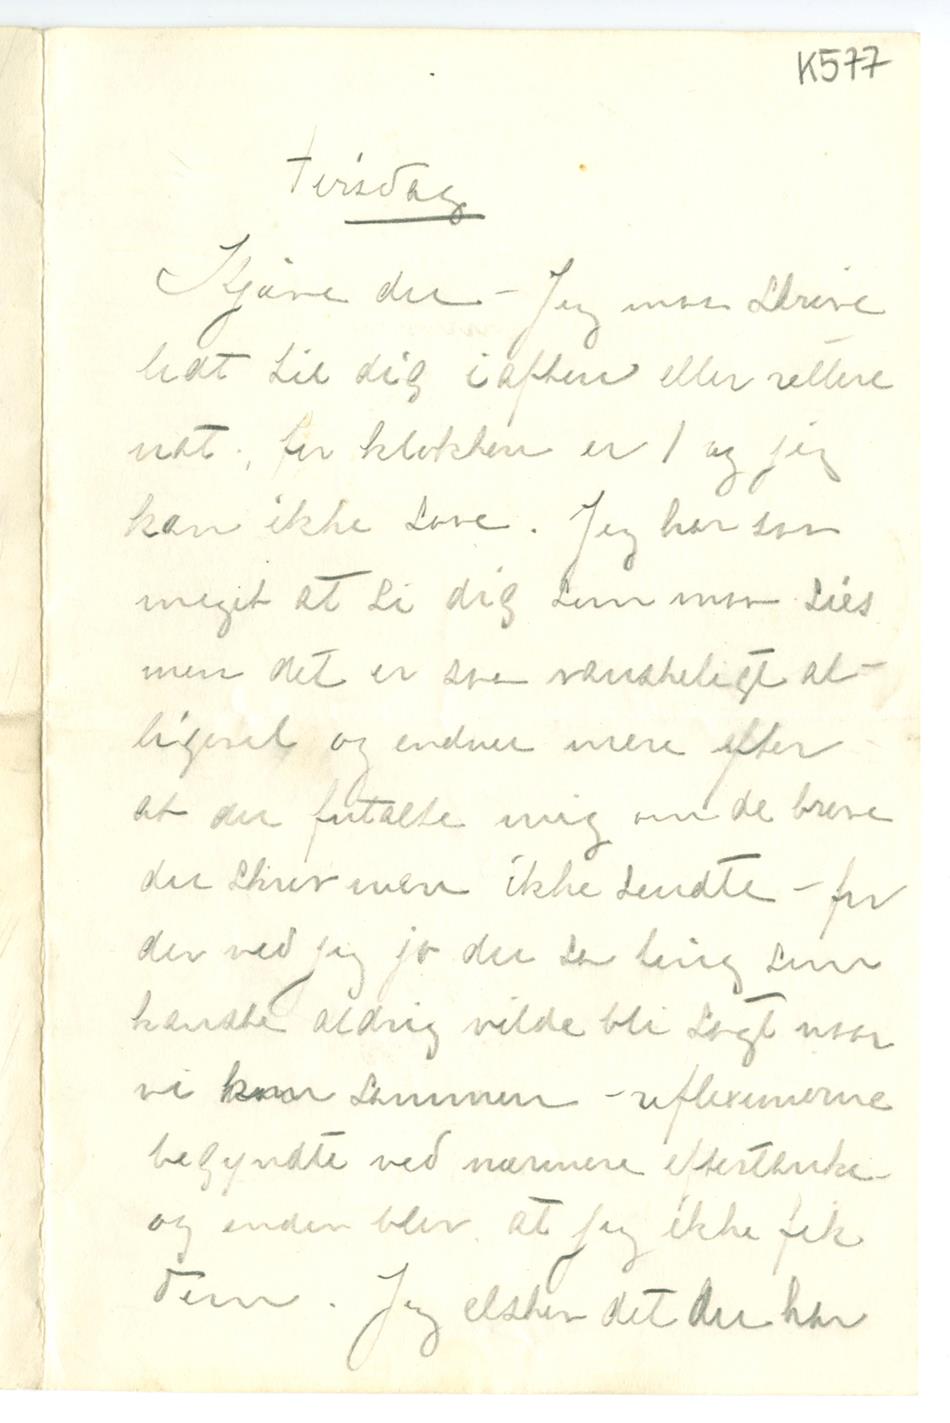 K577
Tirsdag
Kjære du – Jeg maa skrive
lidt til dig iaften eller rettere
nat, for klokken er 1 og jeg
kan ikke sove. Jeg har saa
meget at si dig som maa sies
men det er saa vanskeligt al-
ligevel og endnu mere efter
at du fortalte mig om de breve
du skrev men ikke sendte – for
der ved jeg jo du sa ting som
kanske aldrig vilde bli sagt naar
vi kom sammen – reflexionerne
begyndte ved nærmere eftertanke
og enden blev at jeg ikke fik
dem. Jeg elsker det du har